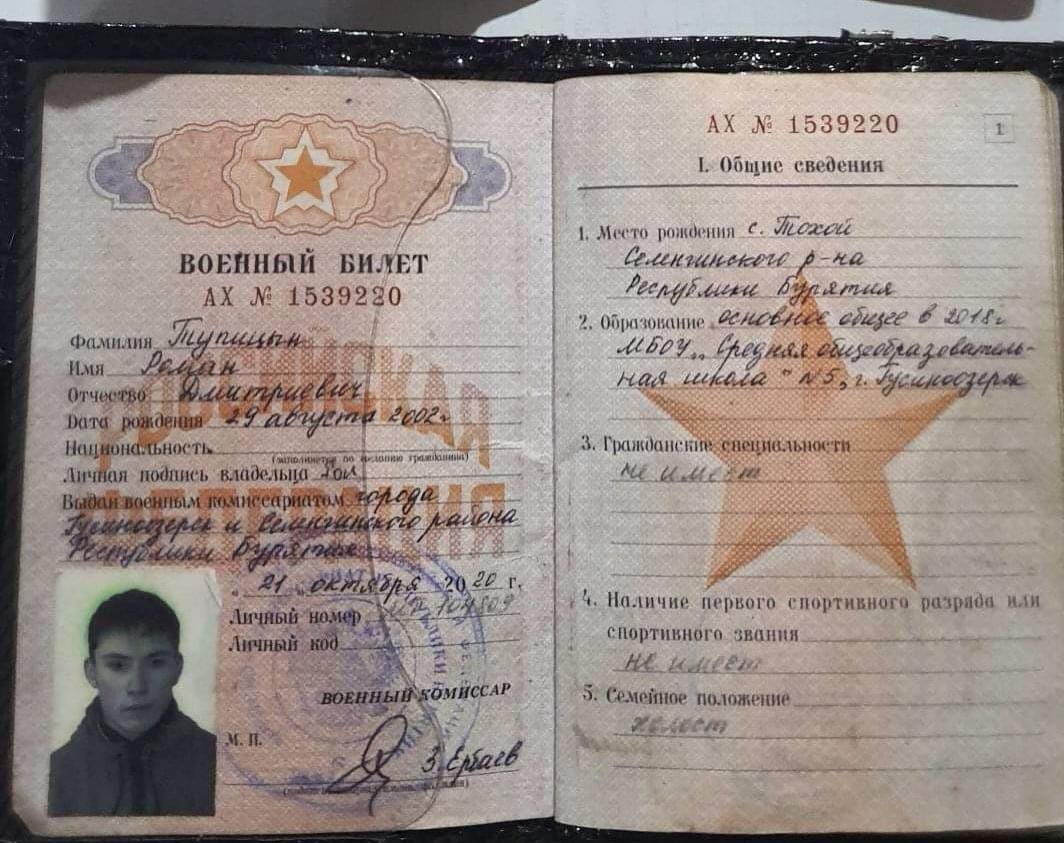 ВОЕННЫЙ БИЛЕТ
АХ № 1539220
Фамилия Тупицын
Имя Роман
Отчество Дмитриевич
Дата рождения 29 августа 2002 г.
Национальность
(заполняется по желанию гражданина)
Личная подпись владельца
Выдан военным комиссариатом города
Гусиноозерск и Селенгинского района
Республики Бурятия
"21" октября 2020 г.
Личный номер 104809
Личный код
ВОЕННЫЙ КОМИССАР
М. П.
З. Ербаев
АХ № 1539220
1
I. Общие сведения
1. Место рождения с. Тохой
Селенгинского р-на
Республики Бурятия
2. Образование основное общее в 2018 г.
МБОУ „Средняя общеобразователь-
ная школа " №5, г. Гусиноозерск
3. Гражданские специальности
не имеет
4. Наличие первого спортивного разряда или
спортивного звания
не имеет
5. Семейное положение
холост